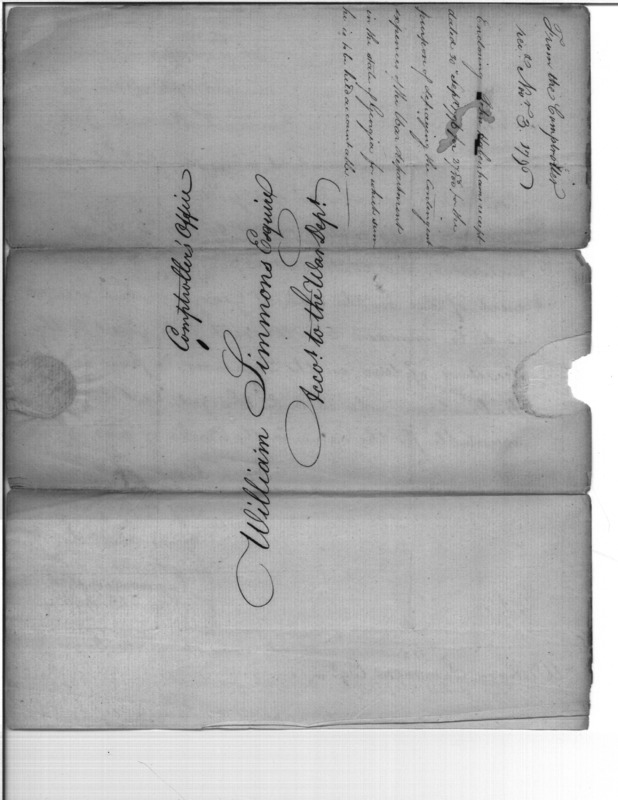 From the Comptroller
recd. Novr. 3. 1796
Enclosing receipt
dated 30 Septr. for the
purpose of defraying the Contingent
expences of the War department
in the State of Georgia for which sum
he is to be held accountable
Comptroller's Office
William Simmons Esquire
Acco.t to the War Dep.t